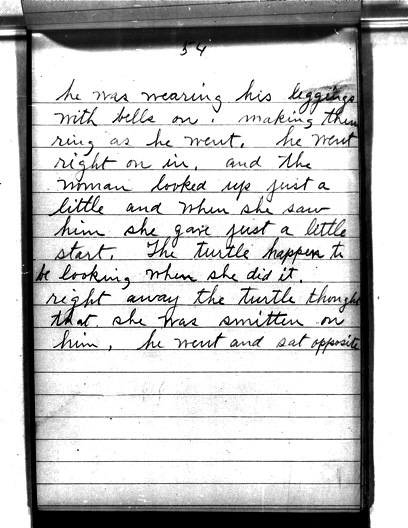 54
he was wearing his leggings
with bells on. making them
ring as he went. he went
right on in. and the
woman looked up just a
little and when she saw
him she gave just a little
start. The turtle happen to
be looking when she did it.
right away the turtle thought
that she was smitten on
him, he went and sat opposite